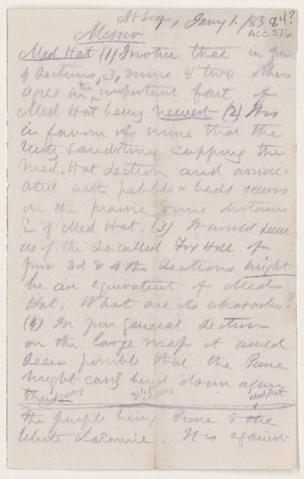 Jany 1. /83 84?
ACC.376
Memo
Med Hat (1) I notice that in your
4 Sections, 3, mine & two others
agree in the important fact of
Med Hat being newest (2) It is
in favour of mine that the
rusty Sandstone capping the
Med. Hat Section and associ-
ated with pebble beds occurs
on the prairie some distance
E of Med Hat. (3) It would seem
as if the so called Fox Hill of
your 3rd & 4th Sections might
be an equivalent of Med
Hat. What are its characters?
(4) In your general Section
on the large map it would
seem possible that the Pierre
might bend down again
thus
Med Hat
the purple being Pierre & the
white Laramie. It is against